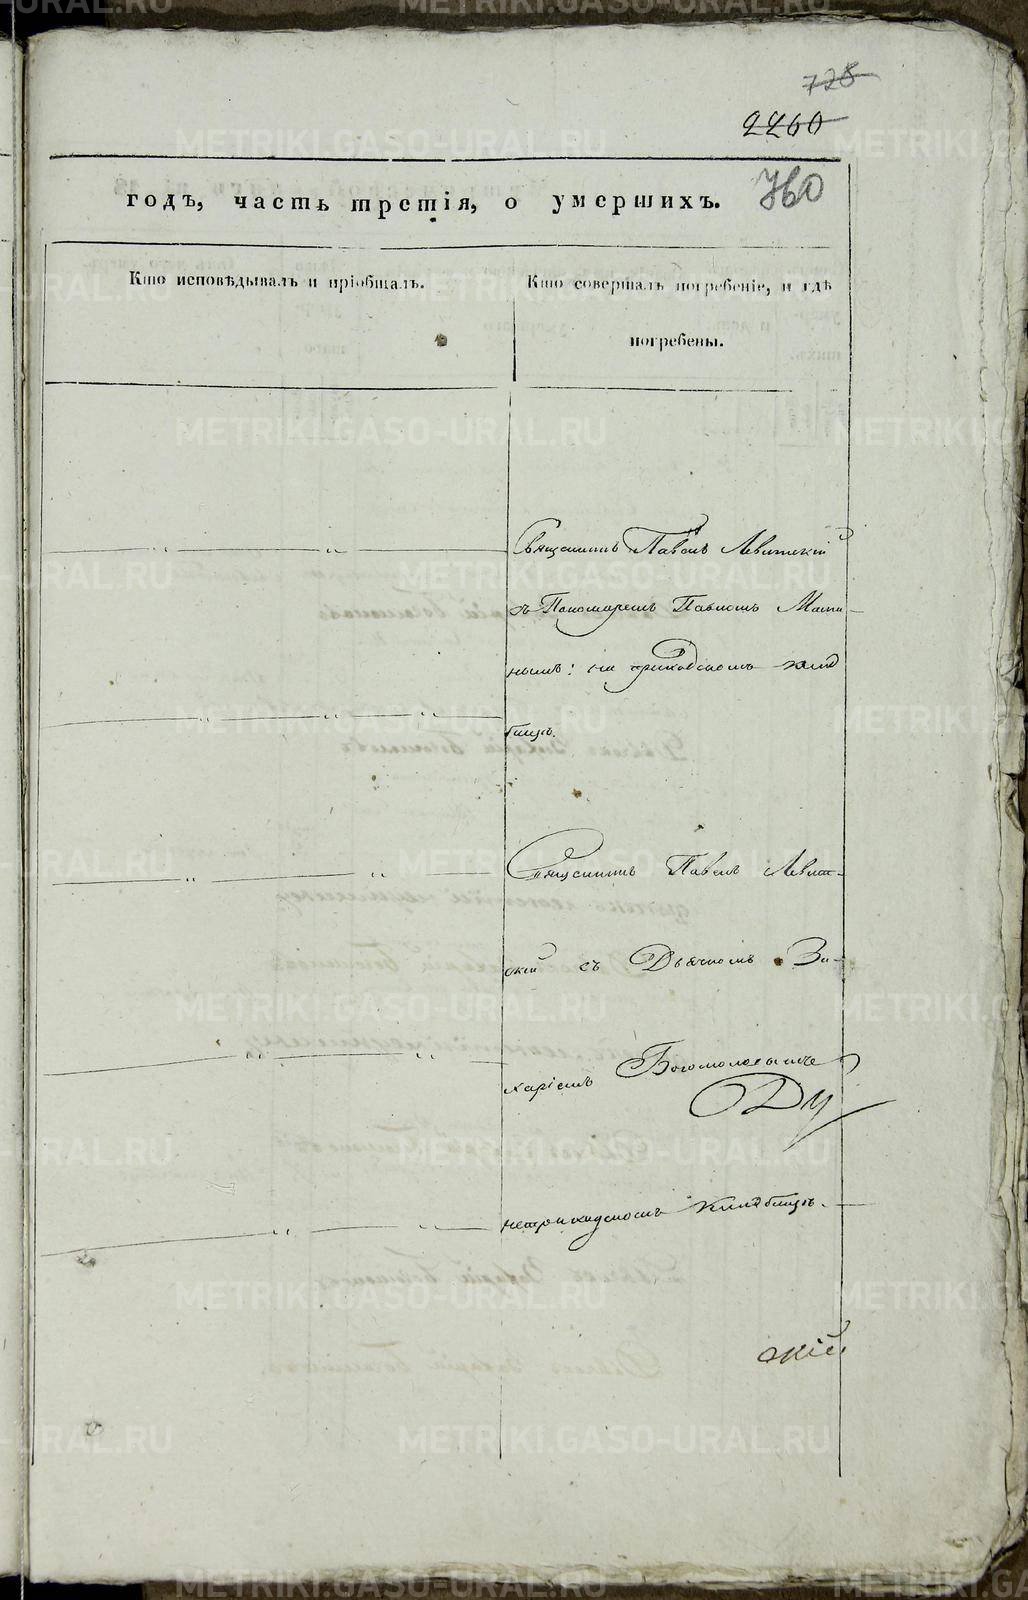 728
2260
760
годъ, часть третія, о умершихъ.
Кто исповѣдывалъ и пріобщалъ.
Кто совершалъ погребеніе, и гдѣ
погребены.
Священникъ Павелъ Левитскій
съ Пономаремъ Павломъ
нымъ: на приходскомъ клад
бищѣ.
Священникъ Павелъ Левит-
скій съ Дьячкомъ За-
харіемъ
приходскомъ кладбищѣ.
скій
METRIKI.GASO-URAL.RU